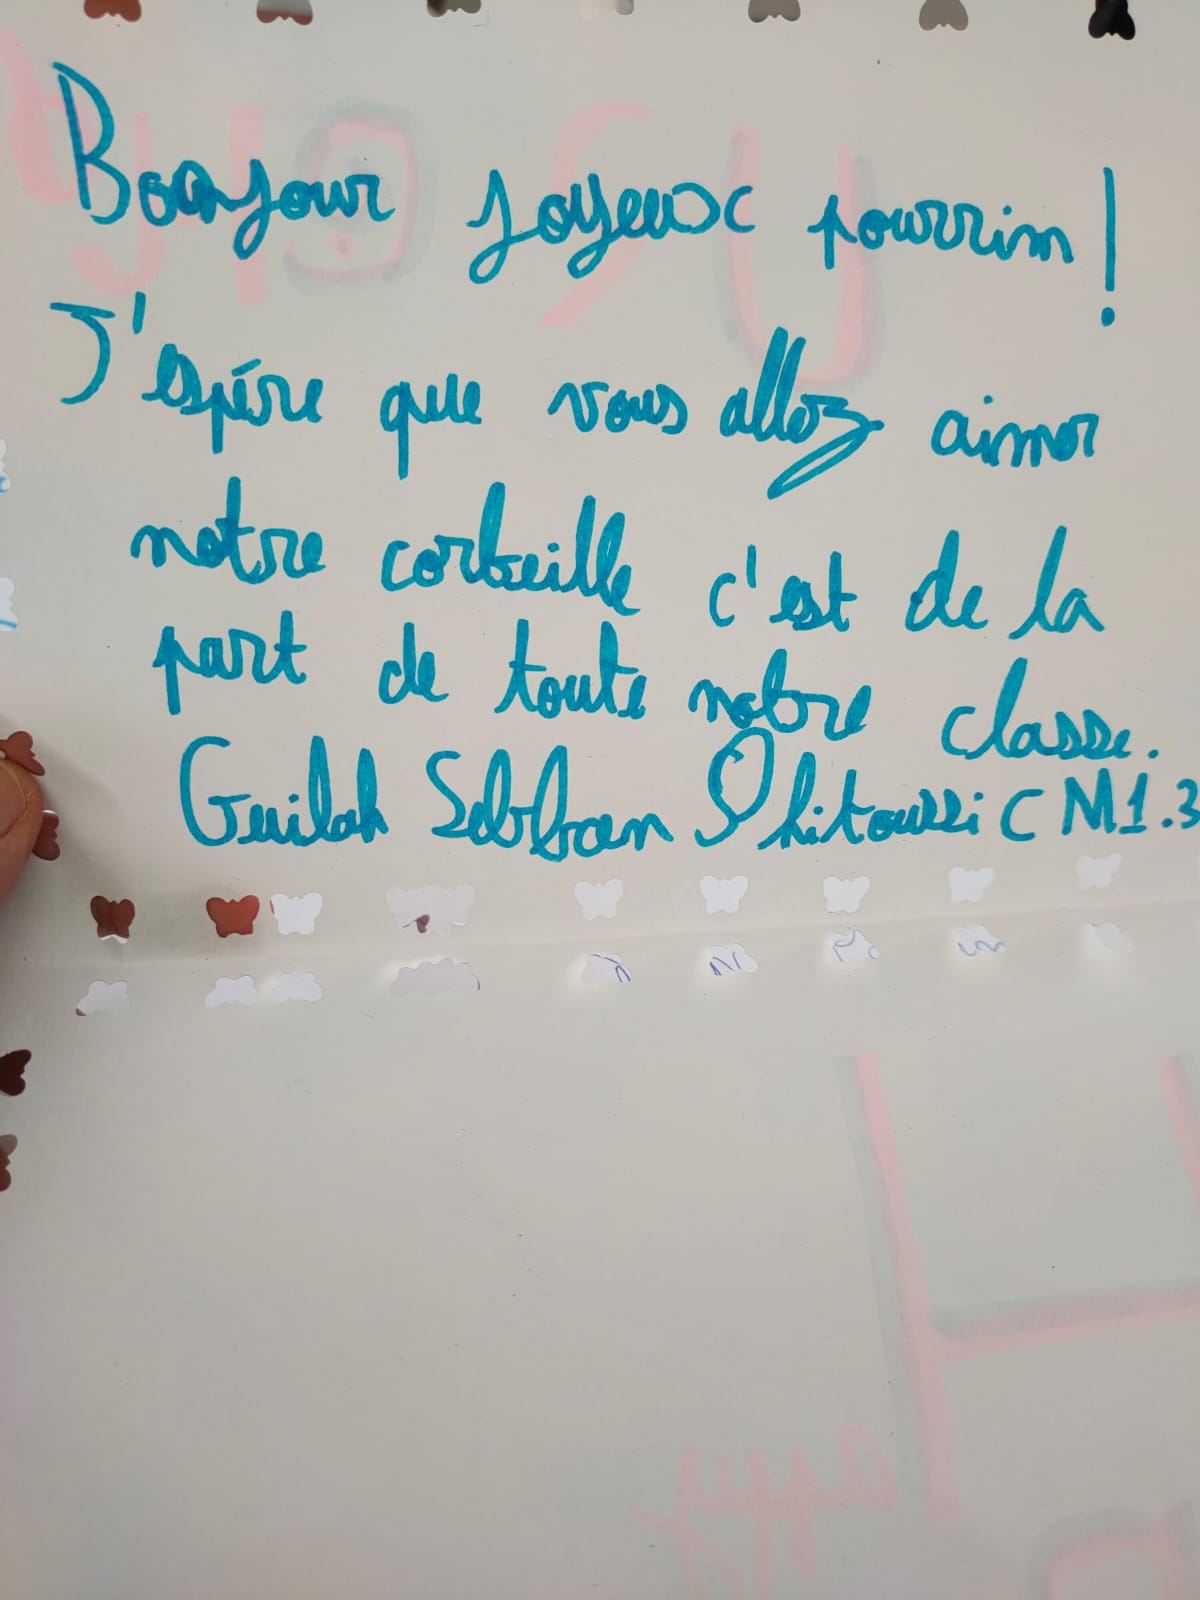 Bonjour joyeux pourrim !
J'espére que vous allez aimer
notre corbeille c'est de la
part de toute notre classe.
Guilah Sebban Ohitoussi CM1.3